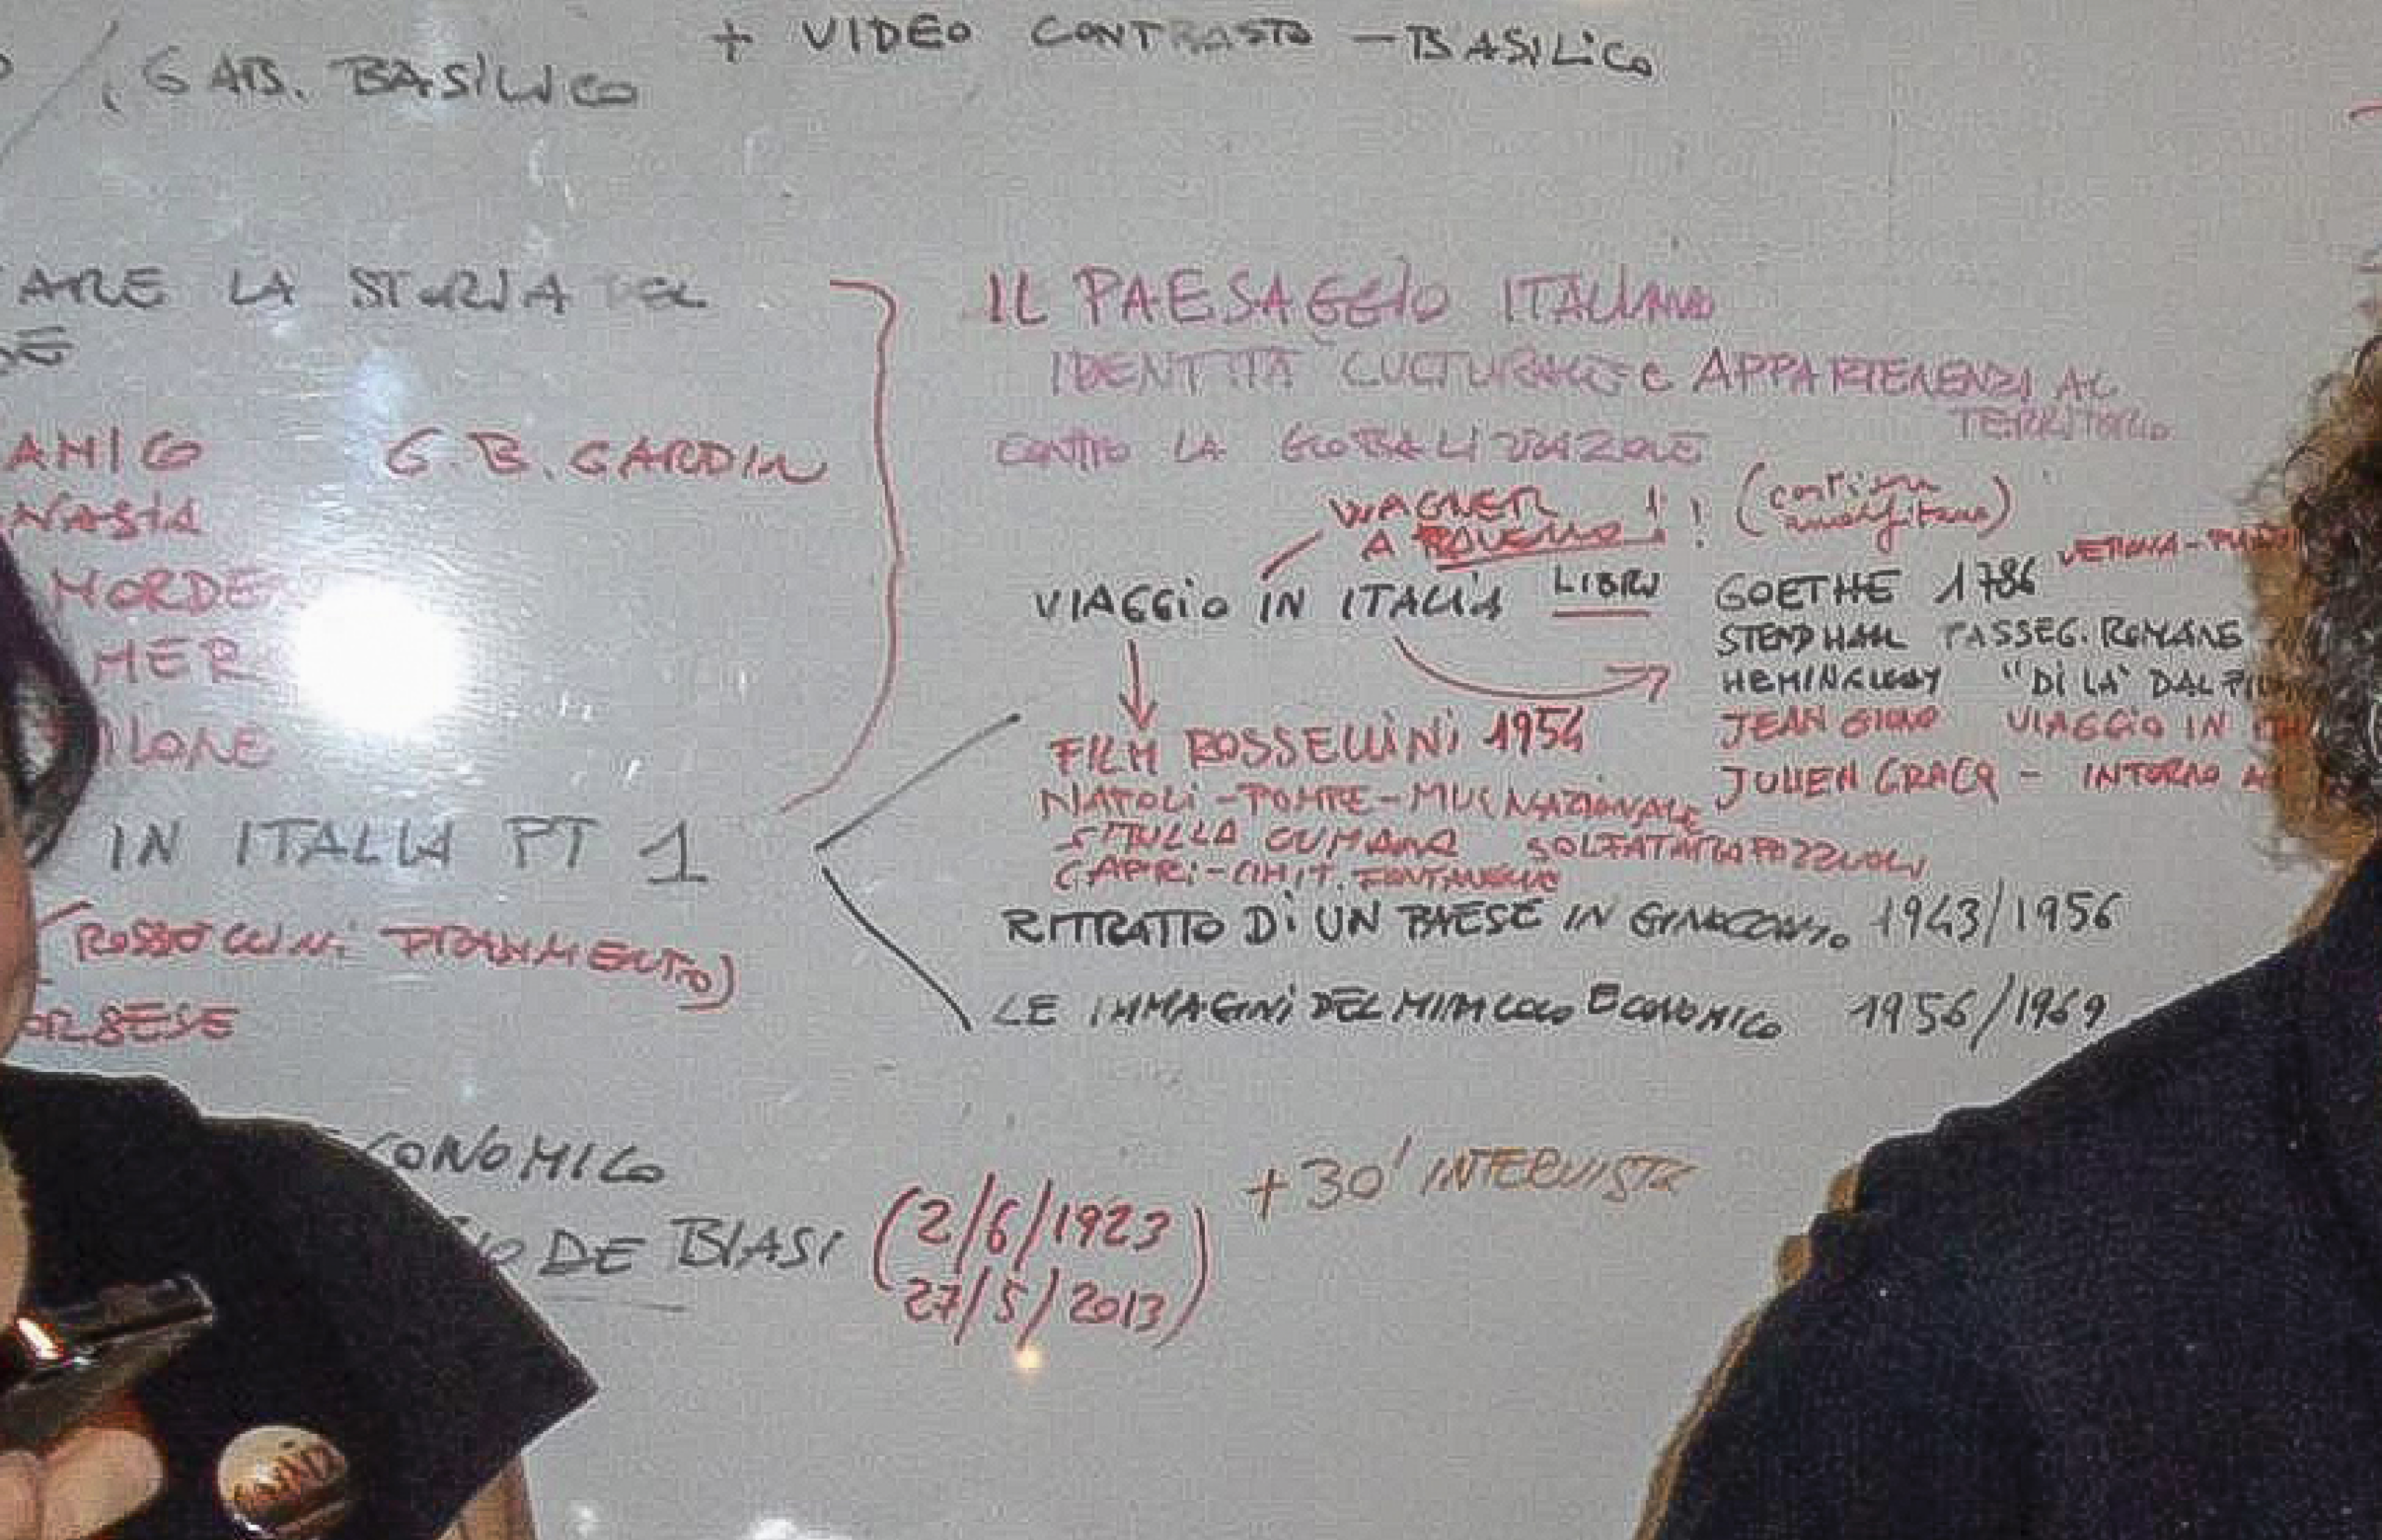 + VIDEO CONTRASTO - BASILICO
GAB. BASILICO
ARE LA STORIA DEL
IL PAESAGGIO ITALIANO
IDENTITÀ CULTURALE e APPARTENENZA AL
TERRITORIO
CONTRO LA GLOBALIZZAZIONE
AMICO G.B. GARDIN
NASIA
WAGNER !! (costiera
A RAVELLO ! amalfitana)
MORDE
VIAGGIO IN ITALIA LIBRI
GOETHE 1786
STENDHAL PASSEG. ROMANE
HEMINGWAY "DI LÀ" DAL
MER
JEAN GIONO VIAGGIO IN
ILONE
FILM ROSSELLINI 1954
JULIEN GRACQ - INTORNO A
NAPOLI - POMPE - MUS NAZIONALE
SIBILLA CUMANA SOLFATARA POZZUOLI
CAPRI - CIMIT. FONTANELLE
IN ITALIA PT 1
RITRATTO DI UN PAESE IN GINOCCHIO 1943/1956
LE IMMAGINI DEL MIRACOLO ECONOMICO 1956/1969
ORGESE
CONOMICO
+ 30' INTERVISTA
IO DE BIASI (2/6/1923
27/5/2013)